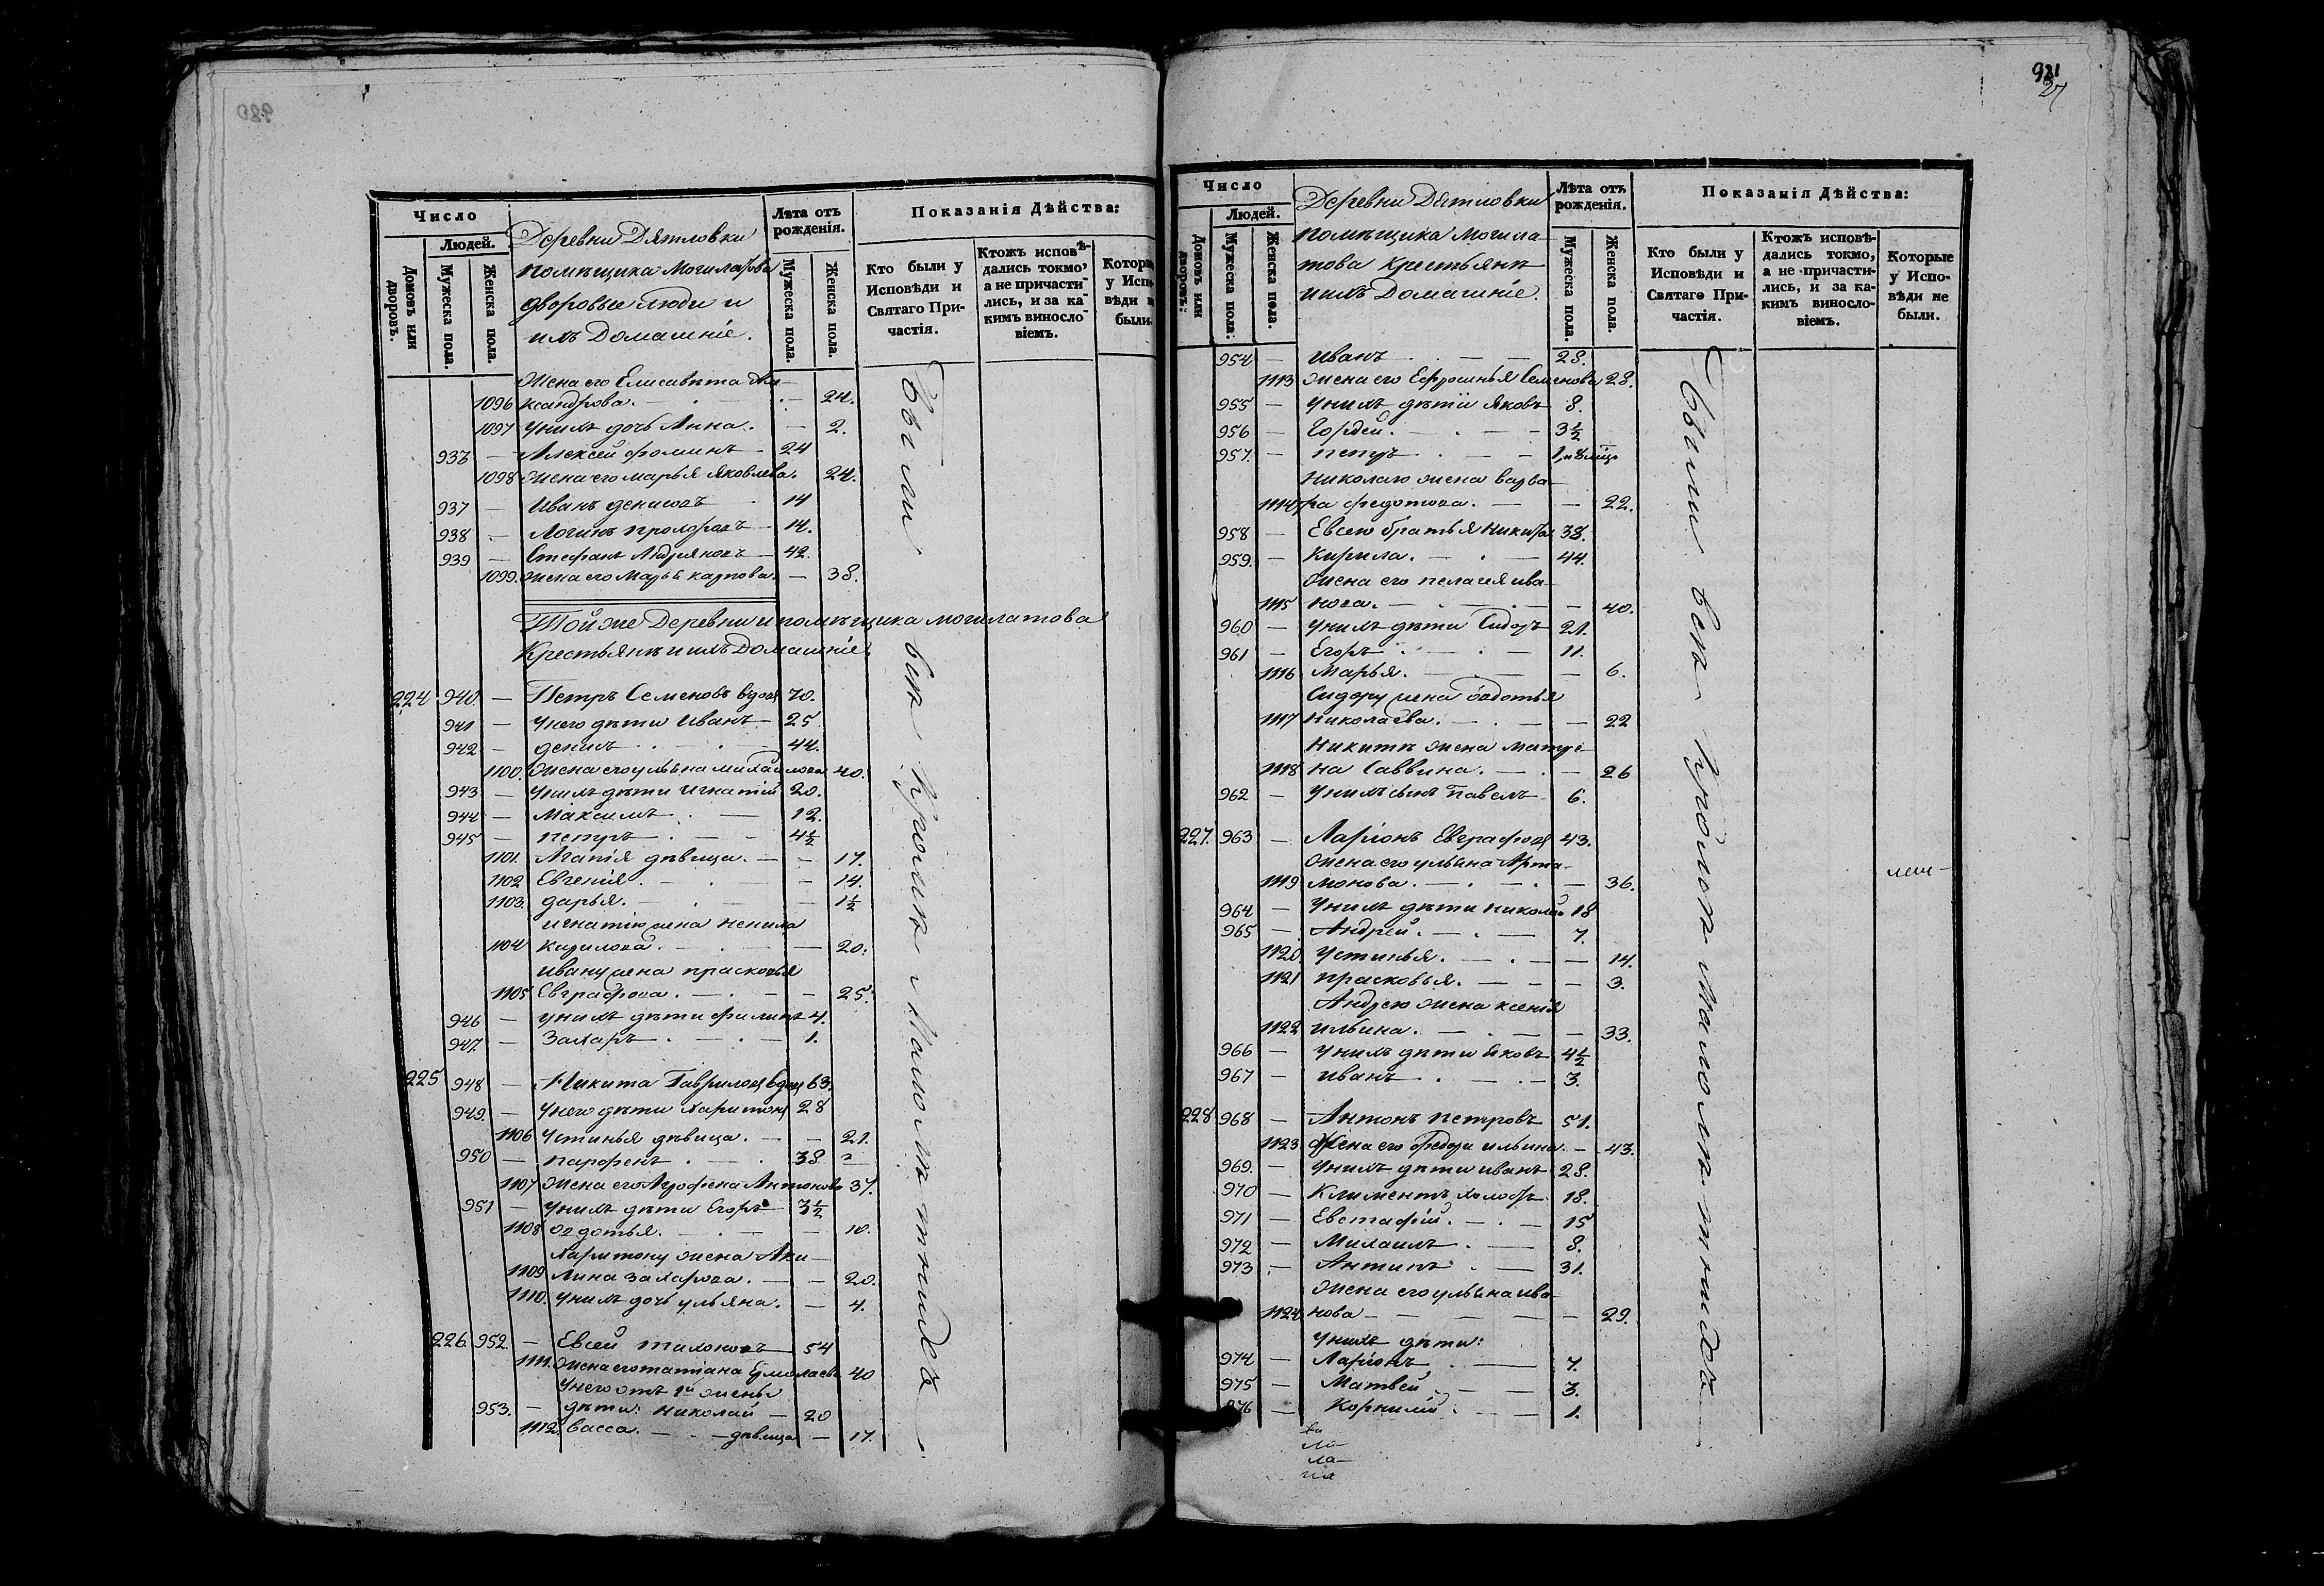 980
Число
Людей.
Домовъ или дворовъ.
Мужеска пола.
Женска пола.
Деревни Дятловки
помѣщика Могилатова
дворовые люди и
ихъ Домашніе.
Лѣта отъ рожденія.
Мужеска пола.
Женска пола.
Показанія Дѣйства:
Кто были у Исповѣди и Святаго При-
частія.
Ктожъ исповѣ-
дались токмо,
а не причасти-
лись, и за ка-
кимъ виносло-
віемъ.
Которые
у Испо-
вѣди не
были.
Жена его Елисавета Але-
1096 ксандрова. — 24.
1097 У нихъ дочь Анна. — 2.
— Алексей Фоминъ — 24
1098 Жена его Марья Яковлева. 24.
937 — Иванъ Денисовъ 14
938 — Логинъ Прохоровъ — 14.
939 — Стефанъ Андреяновъ — 42.
1099. Жена его Марья Карпова. — 38.
Той же Деревни и помѣщика Могилатова
Крестьянѣ и ихъ Домашніе.
224 940. — Петръ Семеновъ вдовъ 70.
941 — У него дѣти Иванъ — 25
942 — Денисъ — 44.
1100. Жена его Ульяна Михайлова 40.
943 — У нихъ дѣти Игнатій 20.
944 — Максимъ — 12.
945 — Петръ — 4½
1101. Агапія дѣвица. — 17.
1102 Евгенія. — 14.
1103. Дарья. — 1½
Игнатію жена Ненила
1104 Кирилова. — 20.
Ивану жена Прасковья
1105 Евграфова. — 25.
946 — У нихъ дѣти Филипъ 4.
947. — Захаръ — 1.
225 948 — Никита Гавриловъ вдовъ 63.
949. — У него дѣти Харитонъ 28
1106 Устинья дѣвица. — 21.
950 — Парфенъ — 38
1107 Жена его Агрофена Антонова 37.
951 — У нихъ дѣти Егоръ — 3½
1108 Овдотья. — 10.
Харитону жена Аку-
1109 лина Захарова. — 20.
1110. У нихъ дочь Ульяна. — 4.
226. 952. — Евсей Тихоновъ — 54
1111. Жена его Татіана Ермолаева 40
У него отъ 1й жены
953. — дѣти: Николай — 20
1112. Васса. — дѣвица — 17.
Были
всѣ кромѣ малолѣтнихъ.
27
Число
Людей.
Домовъ или дворовъ:
Мужеска пола:
Женска пола.
Деревни Дятловки
помѣщика Могила-
това Крестьянѣ
и ихъ Домашніе.
Лѣта отъ рожденія.
Мужеска пола.
Женска пола.
Показанія Дѣйства:
Кто были у
Исповѣди и
Святаго При-
частія.
Ктожъ исповѣ-
дались токмо,
а не причасти-
лись, и за ка-
кимъ виносло-
віемъ.
Которые
у Испо-
вѣди не
были.
954 — Иванъ — 28.
1113 Жена его Ефросинья Семенова 28.
955 — У нихъ дѣти Яковъ 8.
956 — Гордей. — 3½
957. — Петръ —
Николаю жена Варва-
1114 ра Федотова. — 22.
958 — Евсею братья Никита 38.
959. — Кирила. — 44.
Жена его Пелагея Ива-
1115 нова. — 40.
960 — У нихъ дѣти Сидоръ 21.
961 — Егоръ — 11.
1116 Марья. — 6.
Сидору жена Овдотья
1117 Николаева. — 22
Никитѣ жена Матре-
1118 на Саввина. — 26
962 — У нихъ сынъ Павелъ 6.
227. 963 — Ларіонъ Евграфовъ 43.
Жена его Ульяна Арта-
1119 монова. — 36.
964 — У нихъ дѣти Николай 18
965 — Андрей. — 7.
1120. Устинья. — 14.
1121 Прасковья. — 3.
Андрею жена Ксенія
1122 Ильина. — 33.
966 — У нихъ дѣти Яковъ 4½
967 — Иванъ — 3.
228 968 — Антонъ Петровъ 51.
1123 Жена его Федора Ильина. — 43.
969. — У нихъ дѣти Иванъ 28.
970 — Климентъ холостъ 18.
971 — Евстафій. — 15
972 — Михаилъ — 8.
973 — Антипъ — 31.
Жена его Ульяна Ива-
1124 нова — 29.
У нихъ дѣти:
974 — Ларіонъ — 7.
975 — Матвей — 3.
976 — Корнилій — 1.
Были всѣ кромѣ малолѣтнихъ